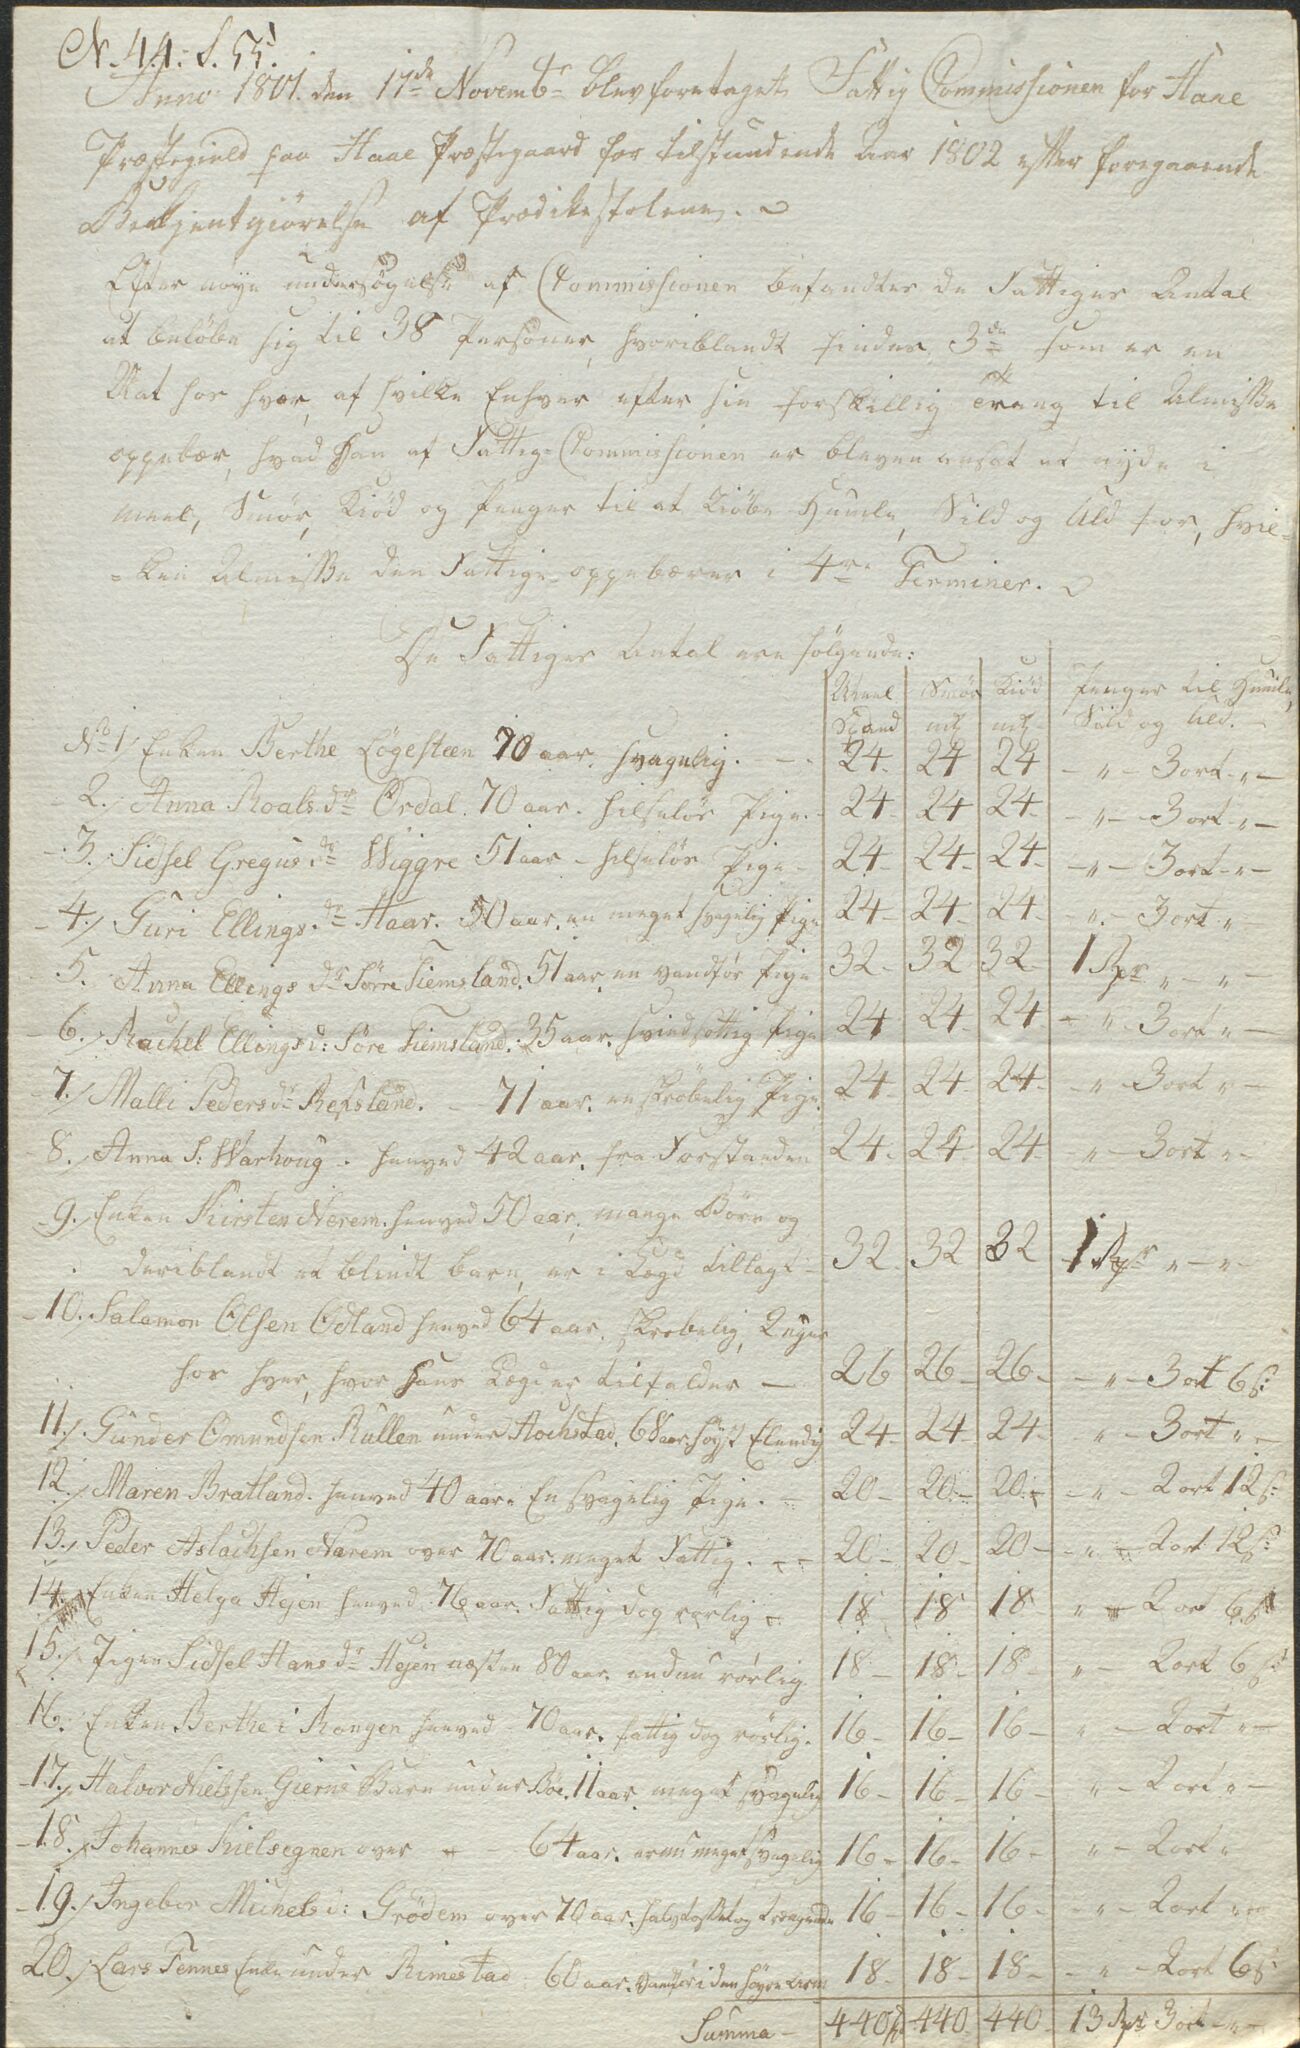 N. 44: L. 55.
Anno 1801. den 17de Novembr blev foretaget Fattig Commissionen for Haae
Præstegield paa Haae Præstegaard for tilstundende Aar 1802 efter foregaaende
Bekjentgiörelse af Prædikestolene.
Efter nöye undersögelse af Commissionen befandtes de Fattiges Antal
at belöbe sig til 38 Personer, hvoriblandt findes 3de som er en
Nat hos hver, af hvilke Enhver efter sin forskillig trang til Almisse
oppebær, hvad han af Fattig-Commissionen er bleven ansat at nyde i
Meel, Smör, Kiöd og Penger til at kiöbe Humle, Sild og Uld for, hvil-
-ken Almisse den Fattige oppebærer i 4re Terminer.
De Fattiges Antal ere fölgende:
Meel Smör Kiöd Penger til Humle,
Spand mk mk Sild og Uld.
No 1/ Enken Berthe Lögesteen 70 aar. svagelig. - 24- 24 24 - " - 3 ort - " -
2. Anna Roalsdr Ordal. 70 aar. helselös Pige. 24- 24- 24- - " - 3 ort - " -
3. Sidsel Gregusdr Wiggre 51 aar - helselös Pige - 24- 24- 24- - " - 3 ort - " -
4./ Guri Ellingsdr Haar. 50 aar. en meget svagelig Pige 24- 24- 24- - " - 3 ort " -
5. Anna Ellingsdr Sörre Tiemsland. 51 aar en vandför Pige 32- 32 32- 1 Rdr " - " -
6./ Rachel Ellingsd: Söre Tiemsland. 35 aar. svindsottig Pige 24 24- 24- - " - 3 ort " -
7./ Malli Pedersdr Refsland. - 71 aar. en skröbelig Pige. 24- 24- 24- - " - 3 ort " -
8./ Anna S: Warhoug. henved 42 aar. fra Forstanden 24- 24- 24- - " - 3 ort " -
9./ Enken Kirsten Nerem. henved 50 aar, mange Börn og
deriblandt et blindt barn, er i Lægd tillagt - 32- 32 32 1 Rdr " - " -
10. Salamon Olsen Odland henved 64 aar. skröbelig, 2 uger
hos hver, hvor hans Lægd er tilfalden - 26 26- 26- - " - 3 ort 6 s:
11./ Gunder Omundsen Rullen under Hochstad. 68 aar. höyst Elendig 24- 24- 24- " - 3 ort " -
12./ Maren Bratland. henved 40 aar. En svagelig Pige. - 20- 20- 20- - " - 2 ort 12 s:
13./ Peder Aslachsen Nærem over 70 aar. meget Fattig. - - 20- 20- 20- - " - 2 ort 12 s:
14. Enken Helga Hejen henved 76 aar. Fattig dog rörlig - 18- 18- 18- " - 2 ort 6 s
15./ Pigen Sidsel Hansdr Hejen næsten 80 aar. endnu rörlig 18- 18- 18- " - 2 ort 6 s:
16. Enken Berthe i Rongen henved - 70 aar. fattig dog rörlig. 16- 16- 16- " - 2 ort " -
17./ Halvor Nielssen Gierus Barn under Böe. 11 aar meget svagelig 16- 16- 16- " - 2 ort " -
18./ Johannes Kielsegnen over - - 64 aar. arm meget svagelig 16- 16- 16- " - 2 ort "
19./ Ingebor Michelsd: Grödem over 70 aar. halvtosset og trængende 16- 16- 16- - " - 2 ort "
20./ Lars Tennes Enke under Rimestad 60 aar. vanför i den höyre Arm 18- 18- 18- - " - 2 ort 6 s:
Summa - 440 440 440 13 Rdr 3 ort - " -